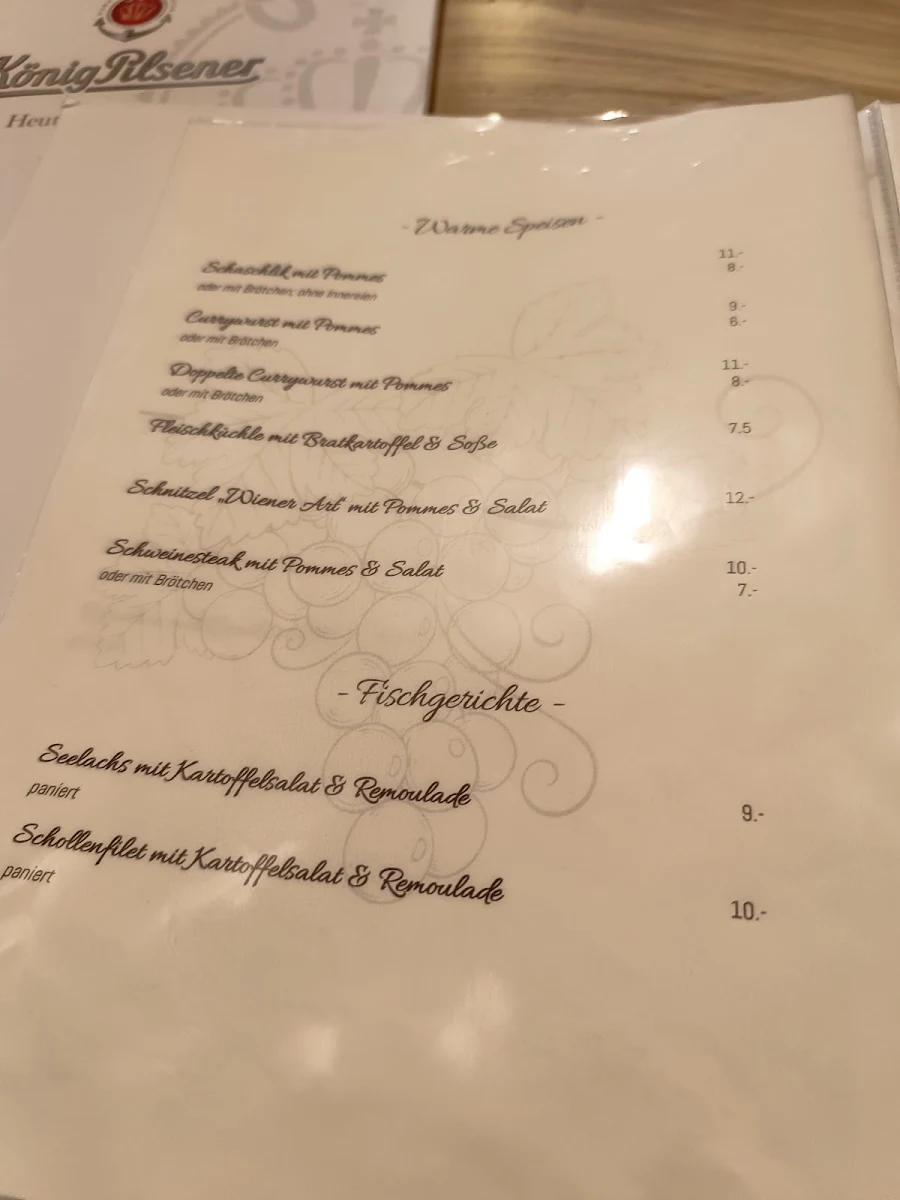 König Pilsener
Heut
- Warme Speisen -
Schaschlik mit Pommes 11.-
oder mit Brötchen, ohne Innereien 8.-
Currywurst mit Pommes 9.-
oder mit Brötchen 6.-
Doppelte Currywurst mit Pommes 11.-
oder mit Brötchen 8.-
Fleischküchle mit Bratkartoffel & Soße 7.5
Schnitzel „Wiener Art“ mit Pommes & Salat 12.-
Schweinesteak mit Pommes & Salat 10.-
oder mit Brötchen 7.-
- Fischgerichte -
Seelachs mit Kartoffelsalat & Remoulade
paniert 9.-
Schollenfilet mit Kartoffelsalat & Remoulade
paniert 10.-